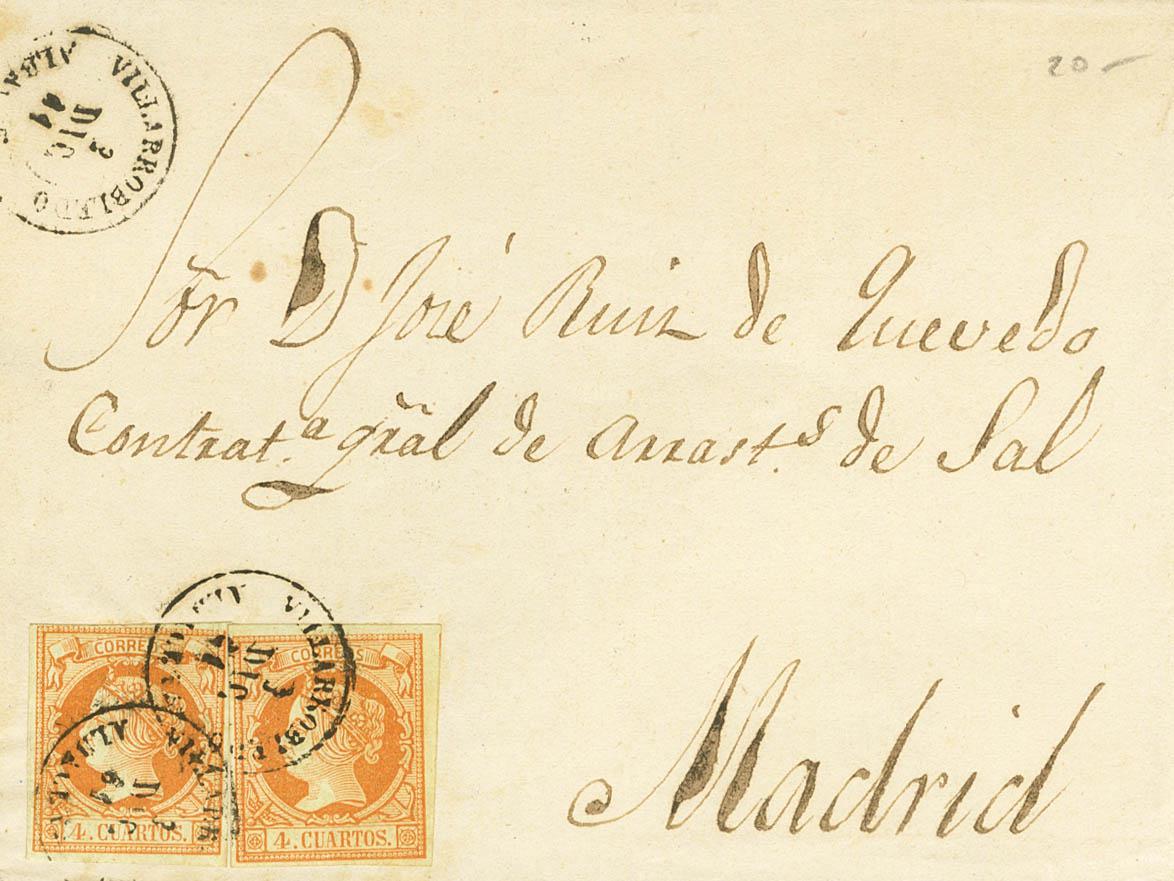 20 –
VILLARROBLEDO
3 DIC
Sor̃ D José Ruiz de Quevedo
Contrat.ª grãl de arrast.s de Sal
VILLARROBLEDO
3 DIC
CORREOS
CORREOS
4. CUARTOS.
4. CUARTOS.
Madrid